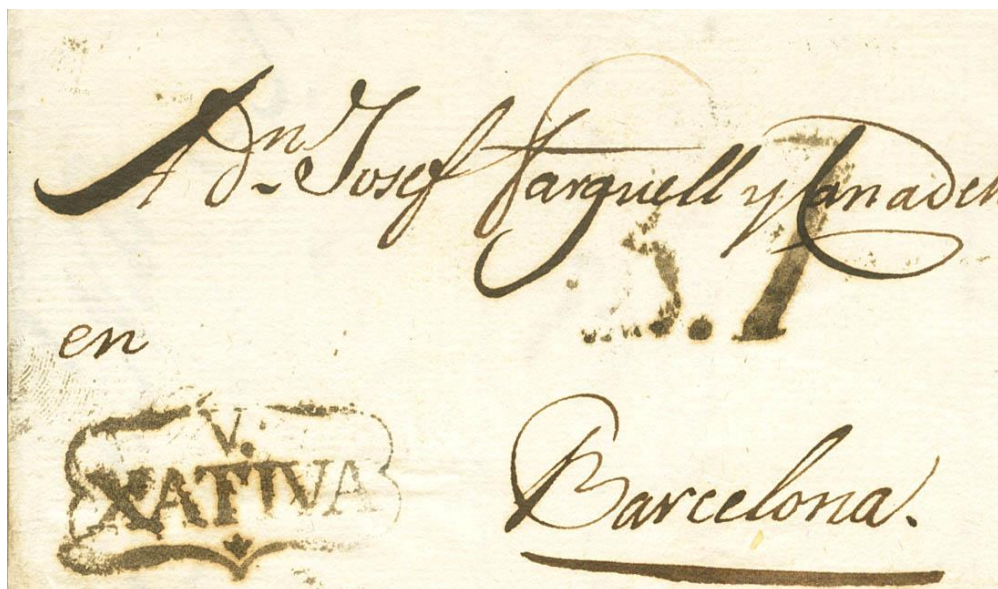 A Dn. Josef Farguell y Canadell
en
V.
XATIVA
Barcelona.